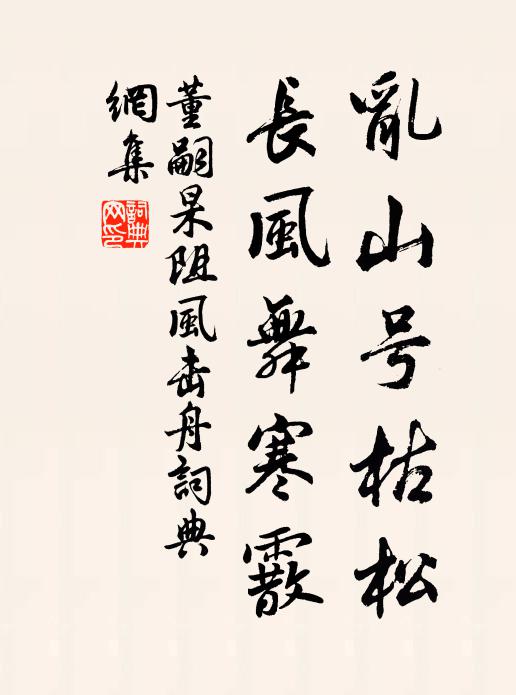 亂山号枯松
長風舞寒霰
董嗣杲阻風雷舟詞典
網集
詞典網印